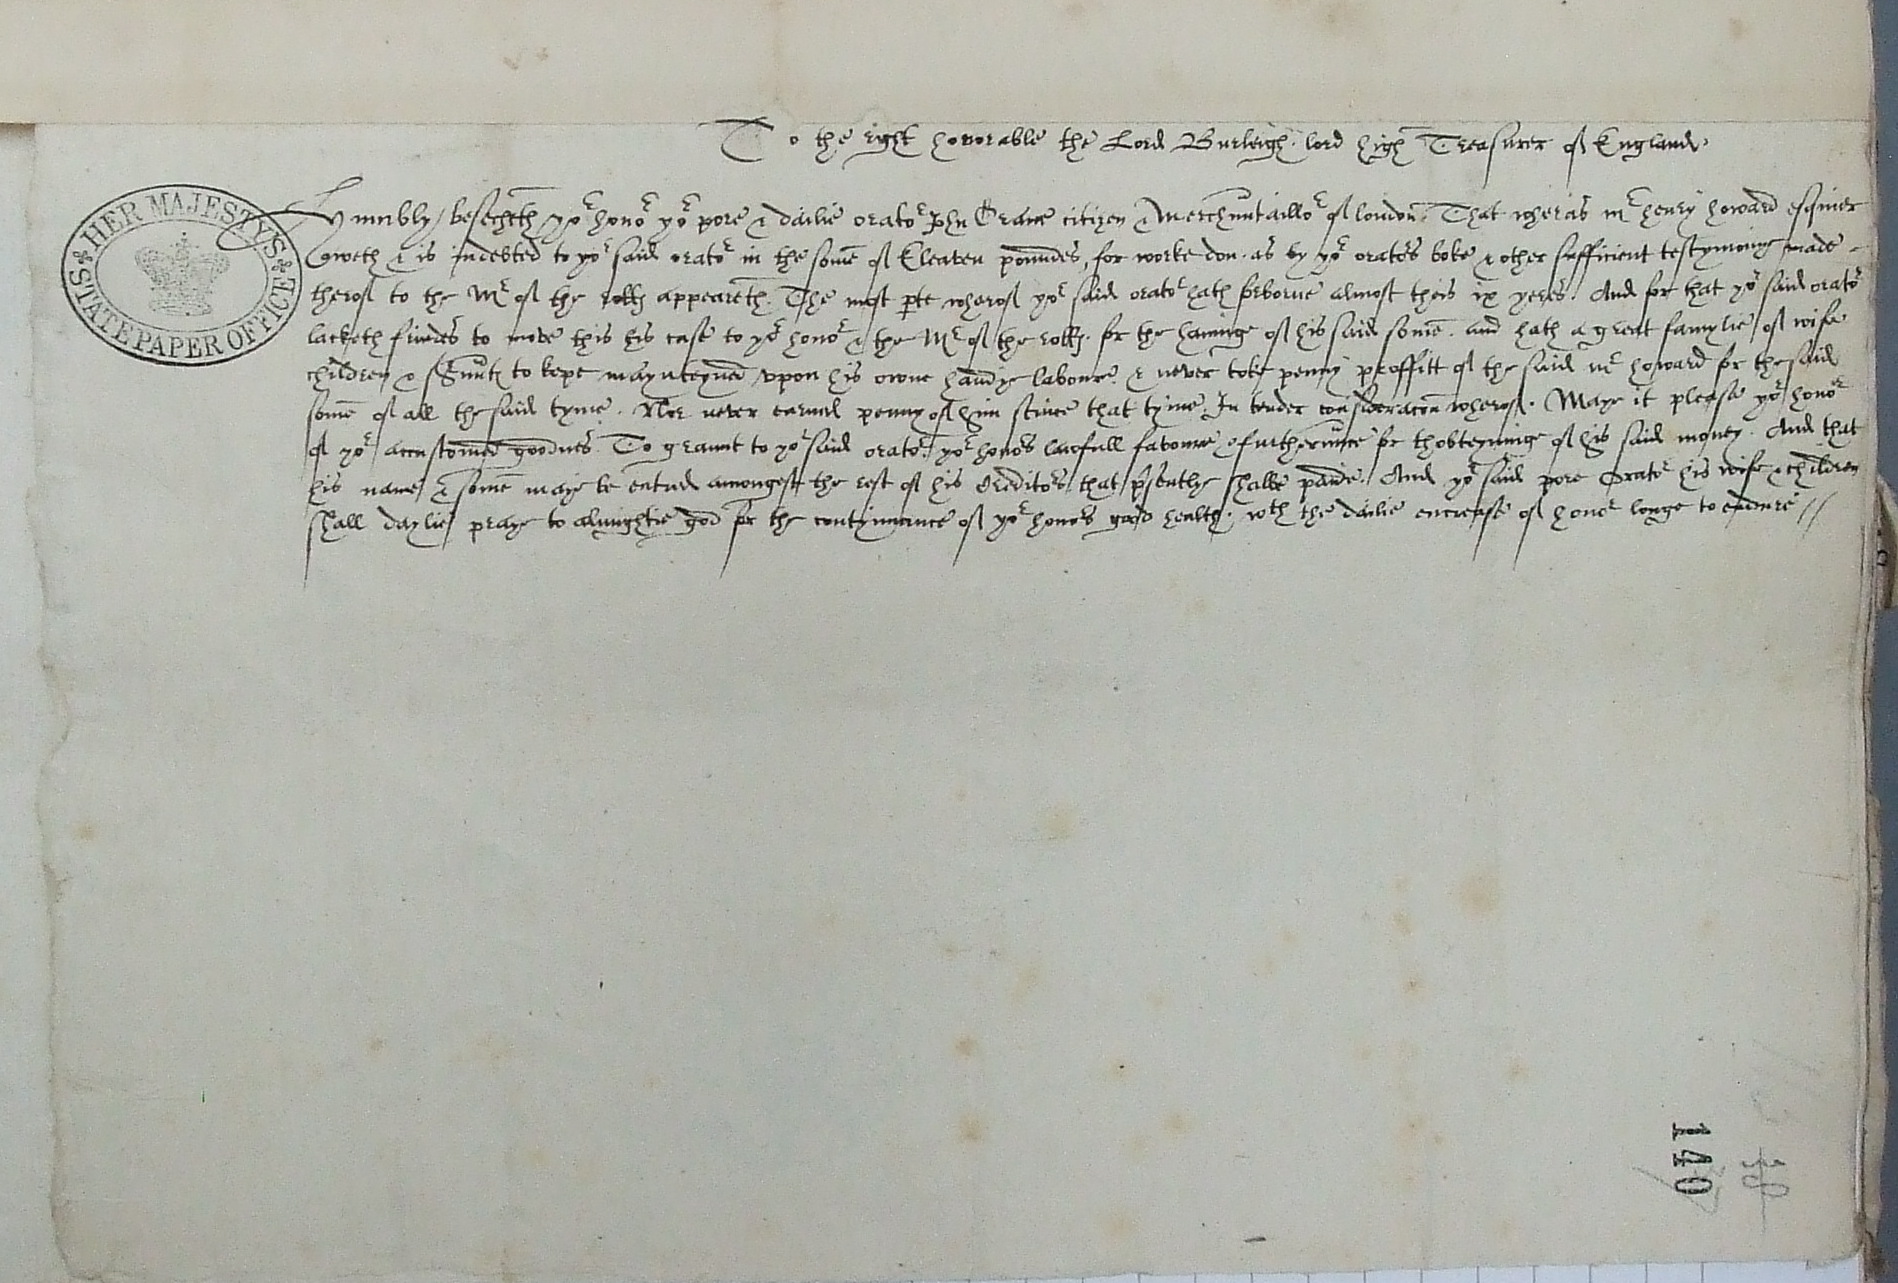 To the right honorable the Lord Burleigh. lord high Treasurer of England.
HER MAJESTY'S STATE PAPER OFFICE
Humbly besecheth yor honor yor pore & dailie orator John Crane citizen & Merchuntaillor of london. That wheras mr henry howard esquier
oweth & is indebted to yor said orator in the some of Eleaven poundes, for worke don. as by yor orators boke & other sufficient testymonie made
therof to the Mr of the rolles appeareth. The most pte wherof yor said orator hath forborne almost theis ix yeres. And for that yor said orator
lacketh frindes to move this his case to yor honor & the Mr of the rolles. for the havinge of his said some. and hath a great famylie of wife
children & Sruntes to kepe & maynteyned vpon his owne handye laboure. & never toke penny proffitt of the said mr howard for the said
some of all the said tyme. Nor never earned penny of him scince that tyme. In tender consideracon wherof. Maye it please yor honor
of yor accustomed goodnes. To graunt to yor said orator. yor honors lawfull favoure & furtherunce for thobteyninge of his said money. And that
his name & some maye be entred amongest the rest of his Creditors that psently shalbe paide. And yor said pore Orator his wife & children
shall daylie praye to almightie god for the contynuance of yor honors good health. wth the dailie encrease of honor longe to endure //
140